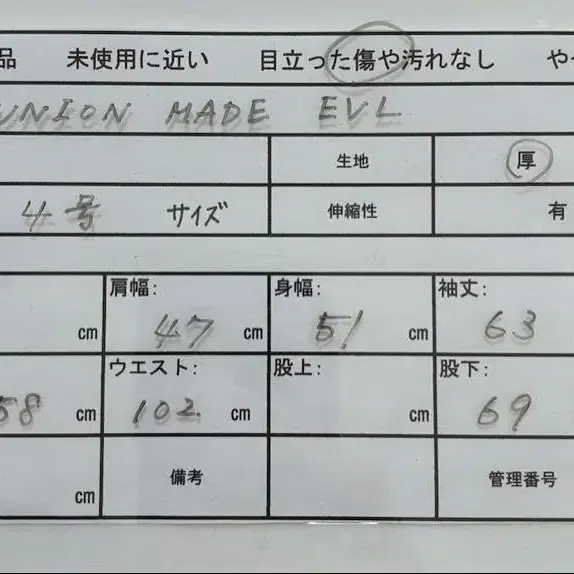 品 未使用に近い 目立った傷や汚れなし やや
UNION MADE EVL
生地 厚
4号 サイズ 伸縮性 有
肩幅: 身幅: 袖丈:
cm 47 cm 51 cm 63
ウエスト: 股上: 股下:
58 cm 102 cm cm 69
cm 備考 管理番号